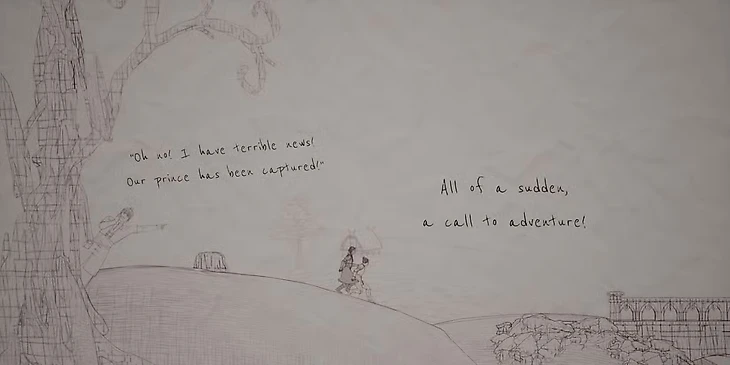 "Oh no! I have terrible news!
Our prince has been captured!"
All of a sudden,
a call to adventure!